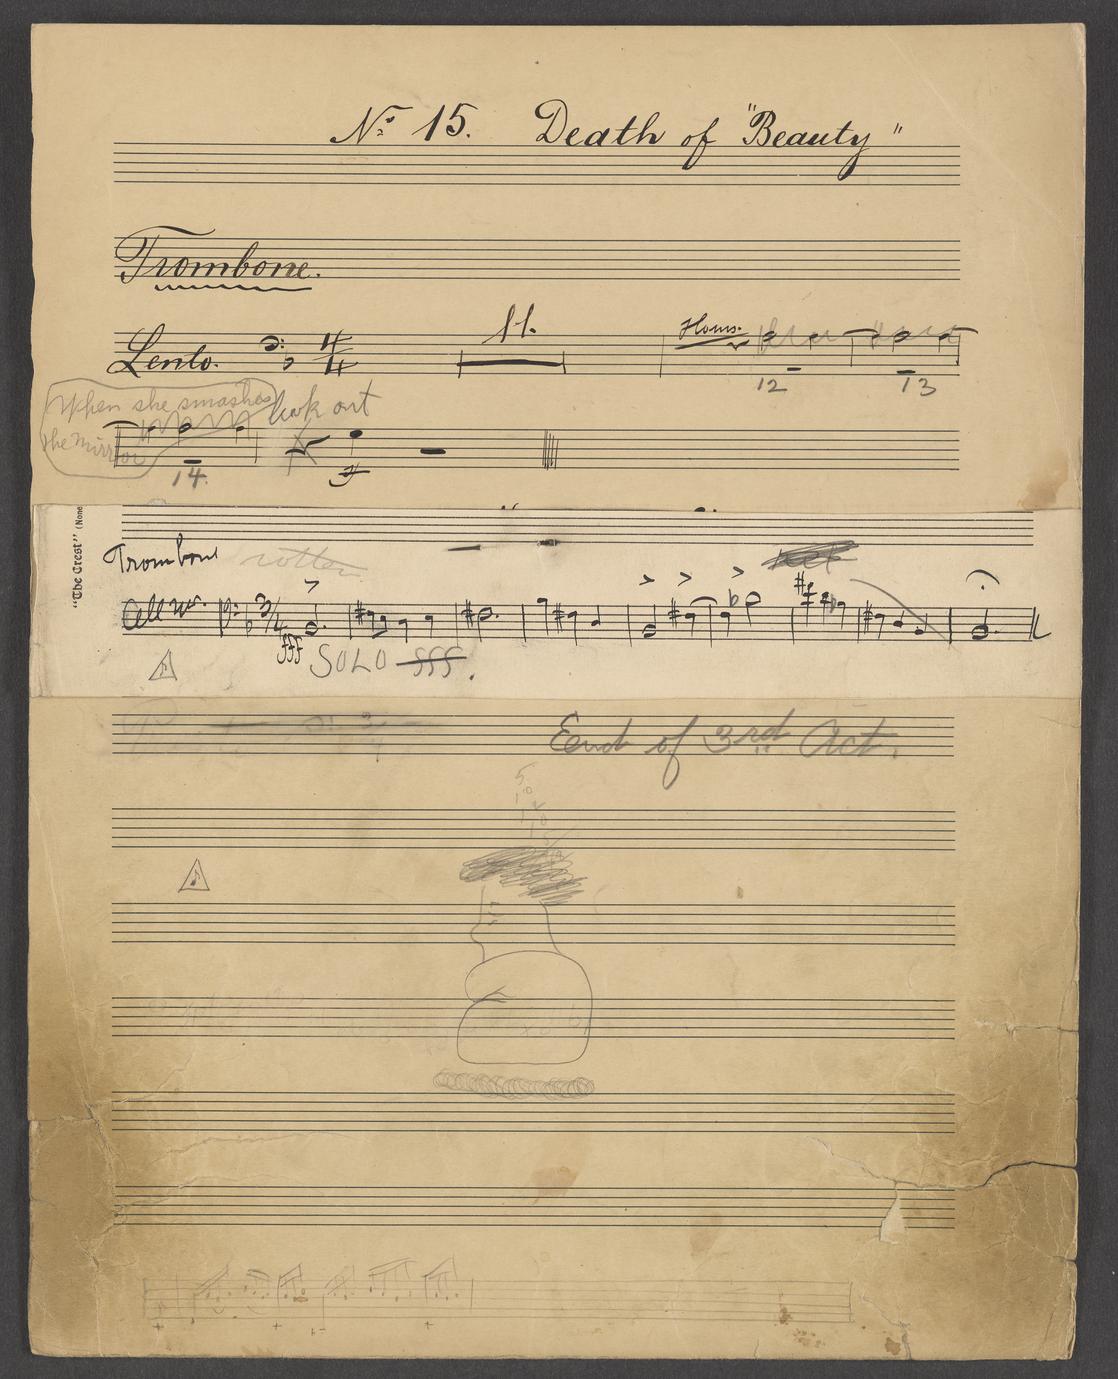 No 15. Death of "Beauty"
Trombone.
Lento. 4/4 11. Horns.
12 13
When she smashes look out
the mirror
14.
"The Crest" (None
Trombone rotten
3/4
fff SOLO fff.
End of 3rd Act.